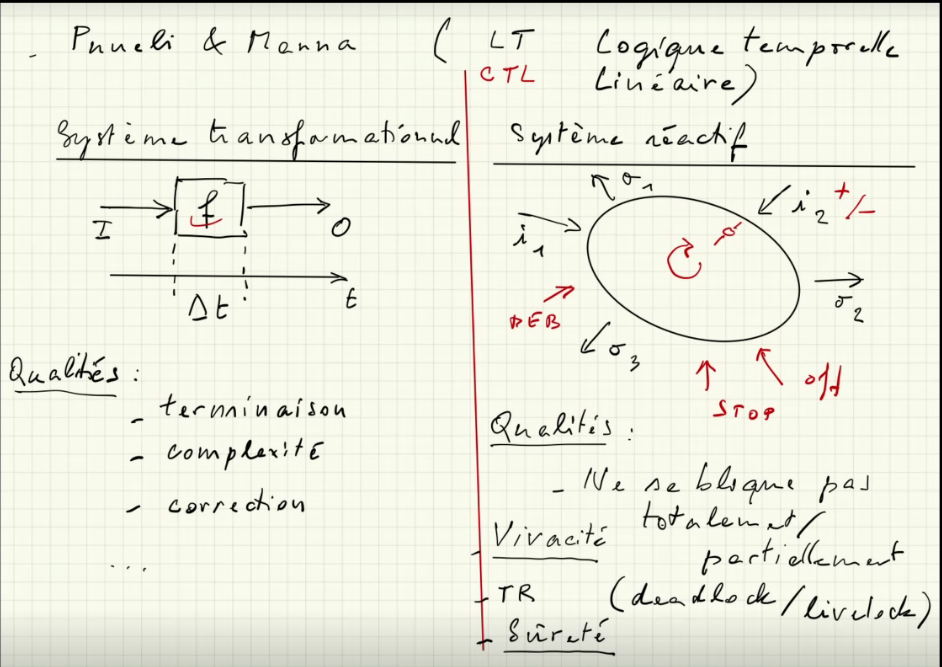 - Pnueli & Manna ( LT Logique temporelle
CTL Linéaire)
Système transformationnel
I f O
t
Δt
Qualités :
- terminaison
- complexité
- correction
...
Système réactif
σ1 i2 +/-
i1
σ2
DEB
σ3
STOP off
Qualités :
- Ne se bloque pas
totalement/
partiellement
(deadlock/livelock)
- Vivacité
- TR
- Sûreté